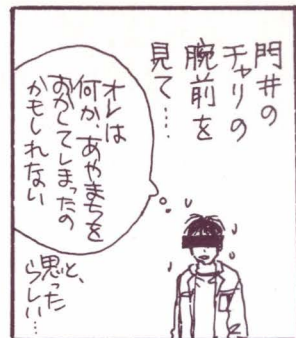 門井の
チャリの
腕前を
見て……
オレは
何か、あやまちを
おかしてしまったの
かもしれない
と、
思った
らしい…